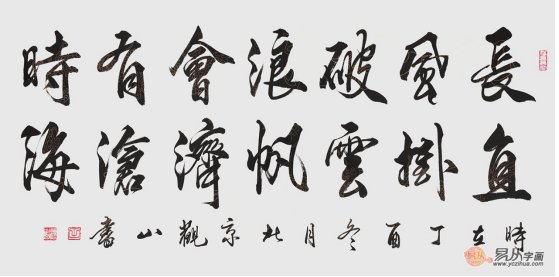 長風破浪會有時
直掛雲帆濟滄海
時在丁酉冬月北京觀山書
易从字画
www.yczihua.com